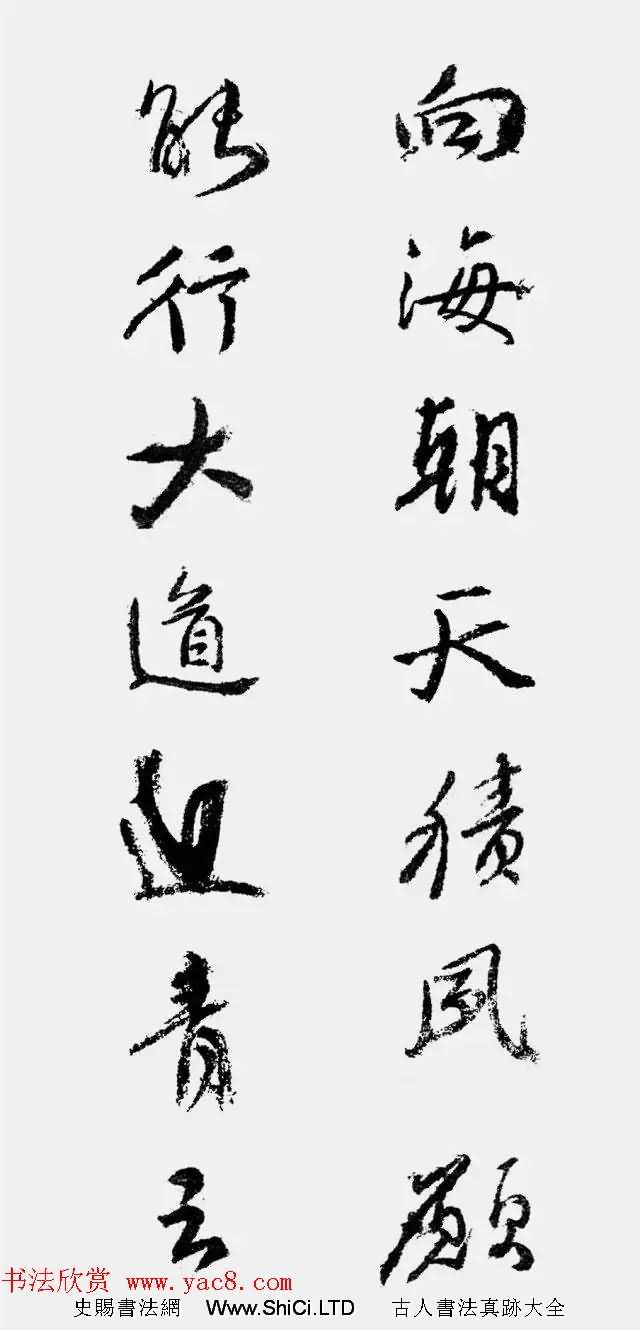 向海朝天積夙願
能行大道迎青云
书法欣赏 www.yac8.com
史賜書法網 Www.ShiCi.LTD 古人書法真跡大全